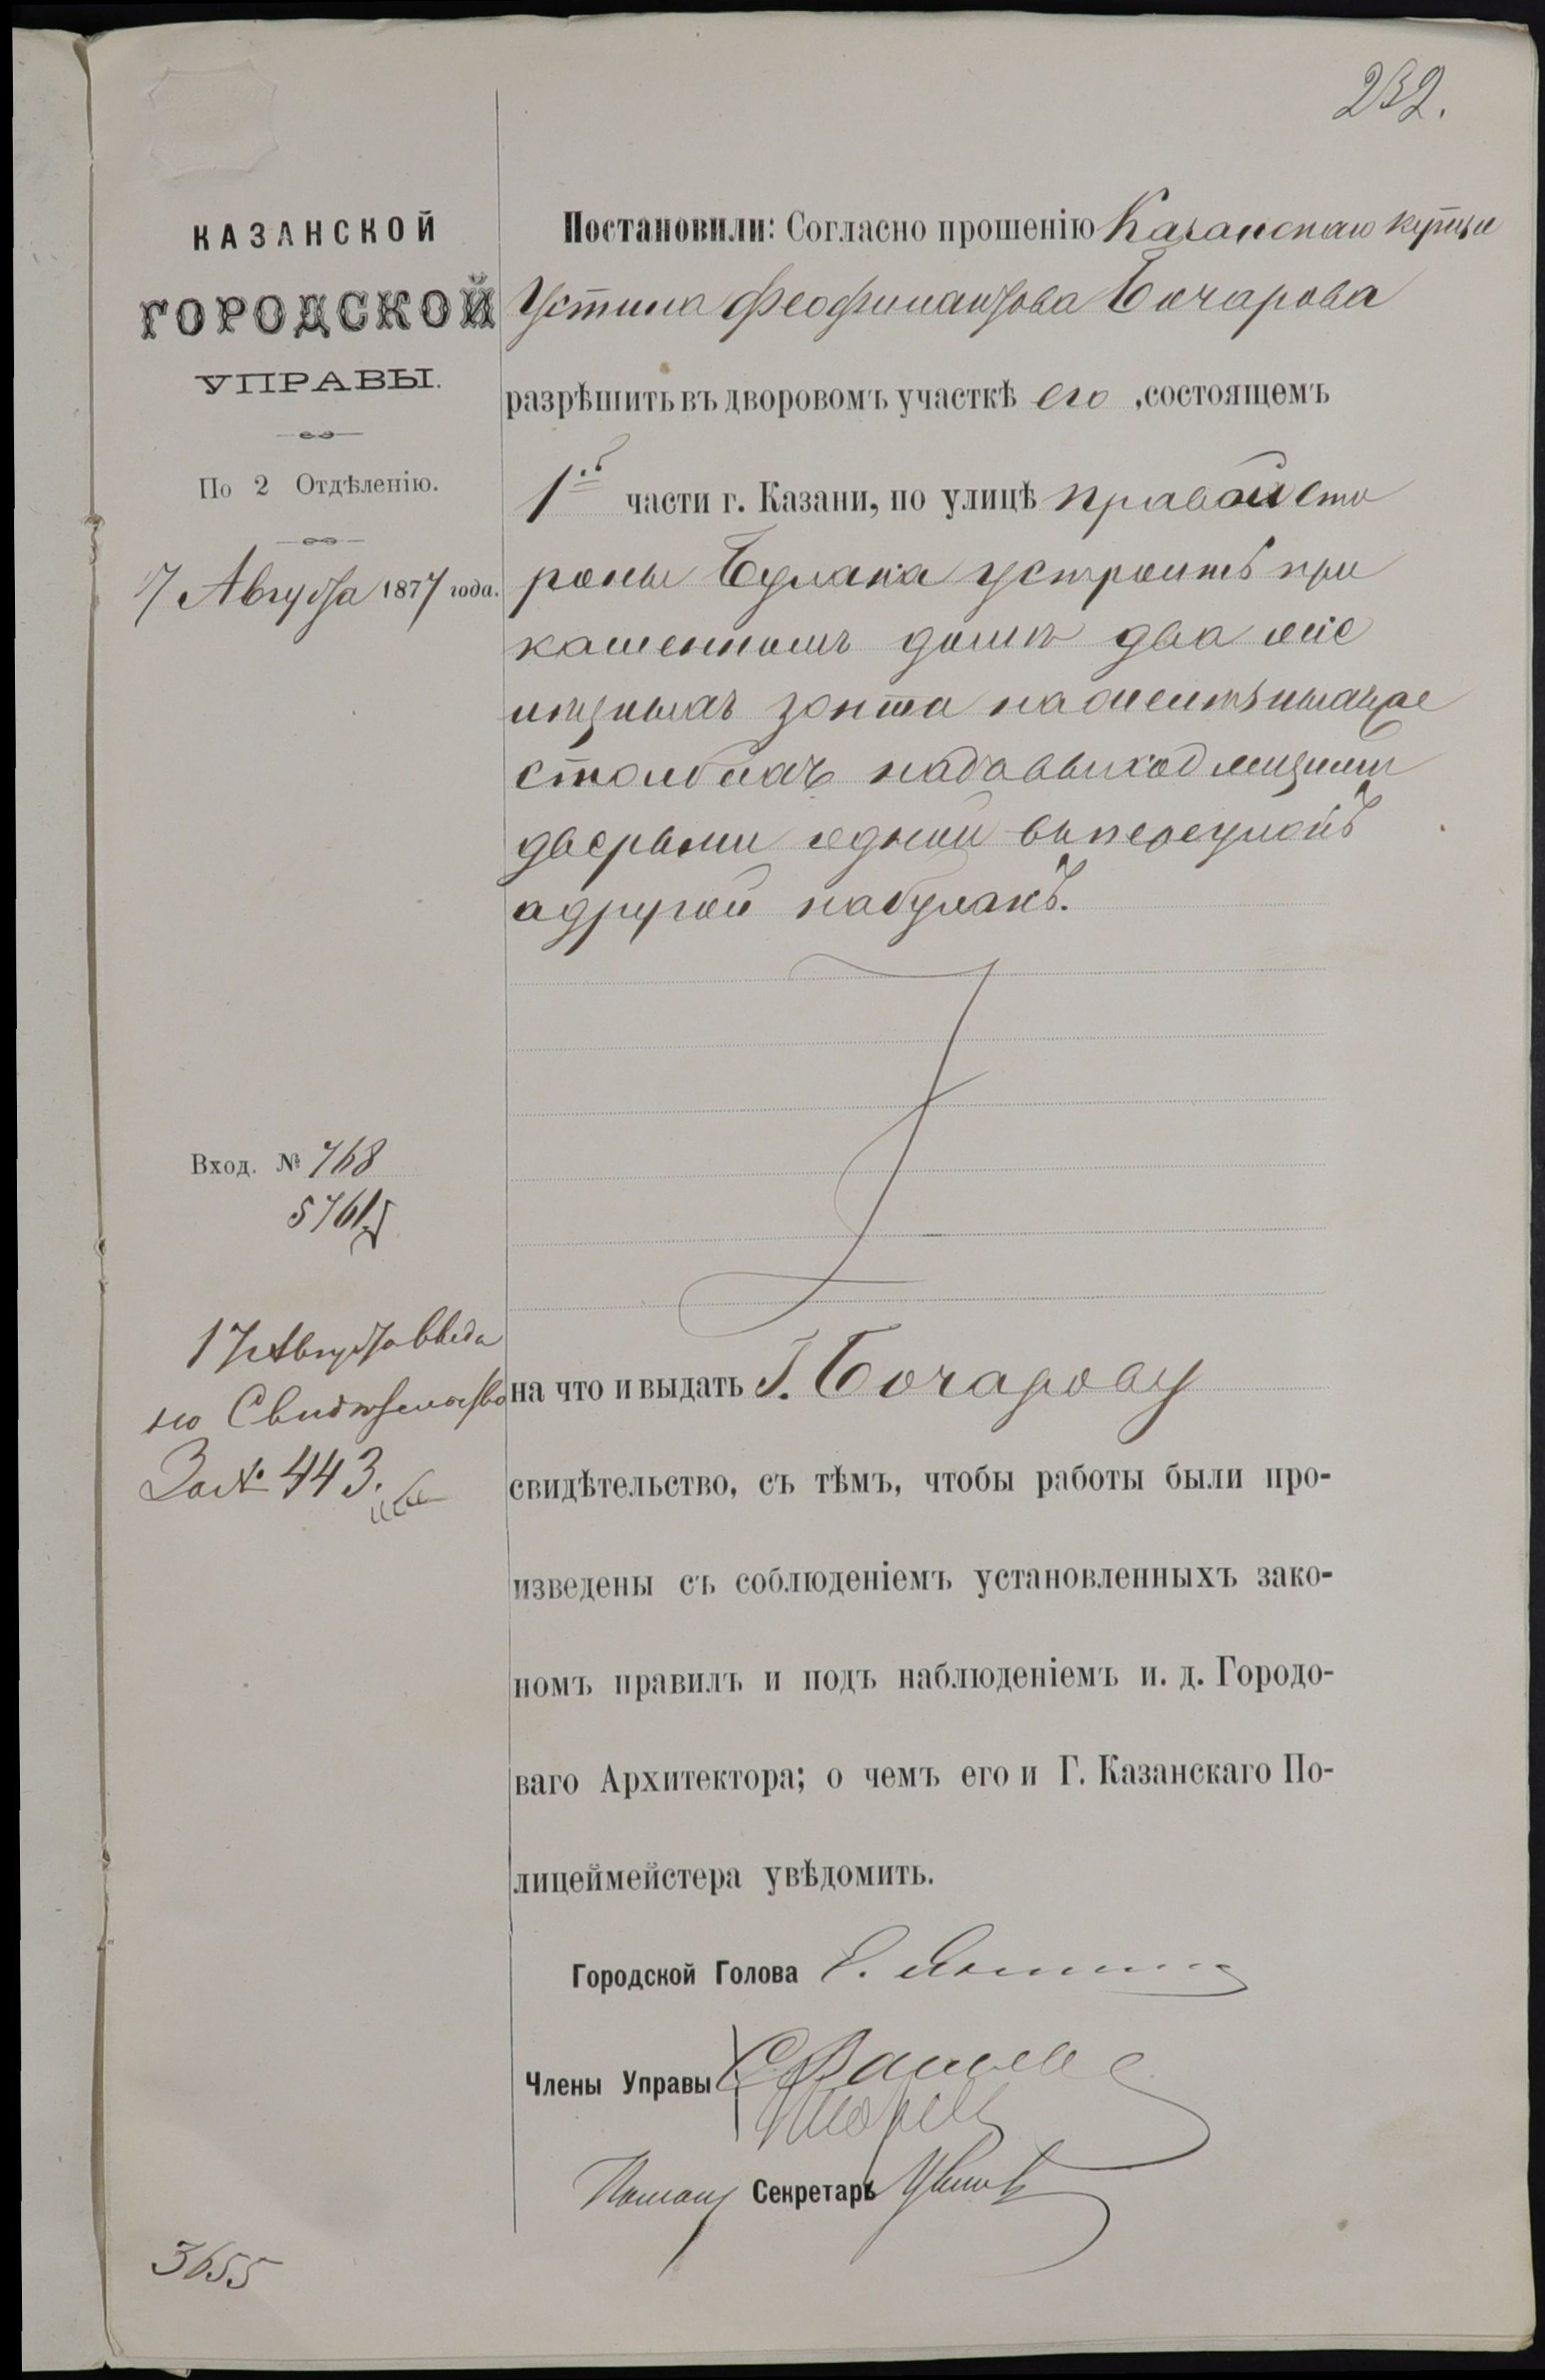 232.
КАЗАНСКОЙ
ГОРОДСКОЙ
УПРАВЫ.
По 2 Отдѣленію.
17 Августа 1877 года.
Вход. № 768
5761
17 Августа выда
но Свидѣтельство
За № 443.
3655
Постановили: Согласно прошенію Казанскаго купца
Устина Феофилактова Бочарова
разрѣшить въ дворовомъ участкѣ его, состоящемъ
1й части г. Казани, по улицѣ правой сто
роны Булака устроить при
каменномъ домѣ два
зонта на
столбахъ надъ выходящими
дверьми одной въ переулокъ
а другой на булакъ.
на что и выдать Г. Бочарову
свидѣтельство, съ тѣмъ, чтобы работы были про-
изведены съ соблюденіемъ установленныхъ зако-
номъ правилъ и подъ наблюденіемъ и. д. Городо-
ваго Архитектора; о чемъ его и Г. Казанскаго По-
лицеймейстера увѣдомить.
Городской Голова
Члены Управы
Секретарь